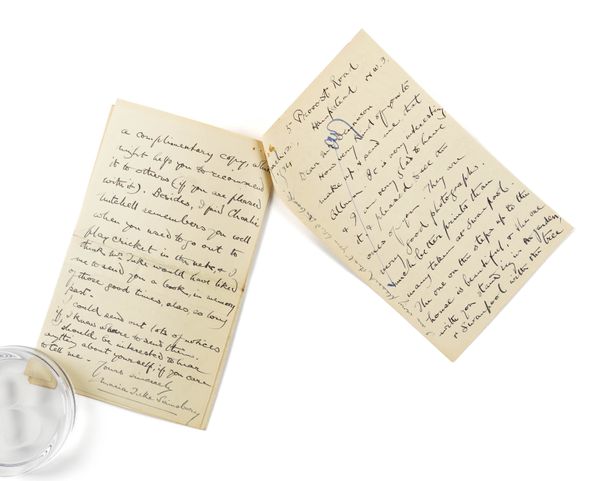 a complimentary copy,
might help you to recommend
it to others (if you are pleased
with it). Besides, I find Charlie
Mitchell remembers you well
when you used to go out to
play cricket in the nets, & I
think Mr. Tuke would have liked
me to send you a book, in memory
of those good times, alas, so long
past.
I could send out lots of notices
if I knew where to send them.
I should be interested to hear
anything about yourself, if you care
to tell me.
Yours sincerely
Maria Tuke Sainsbury
5 Provost Road
Hampstead N.W.3.
Dear
How very kind of you to
make up and send me that
Album. It is very interesting
& I am very glad to have
it, & pleased to see the
ones of you. They are
very good photographs.
Much better prints than
many taken at Swanpool.
The one on the steps up to the
house is beautiful, & the one
with you standing in the garden,
& Swanpool with the tree